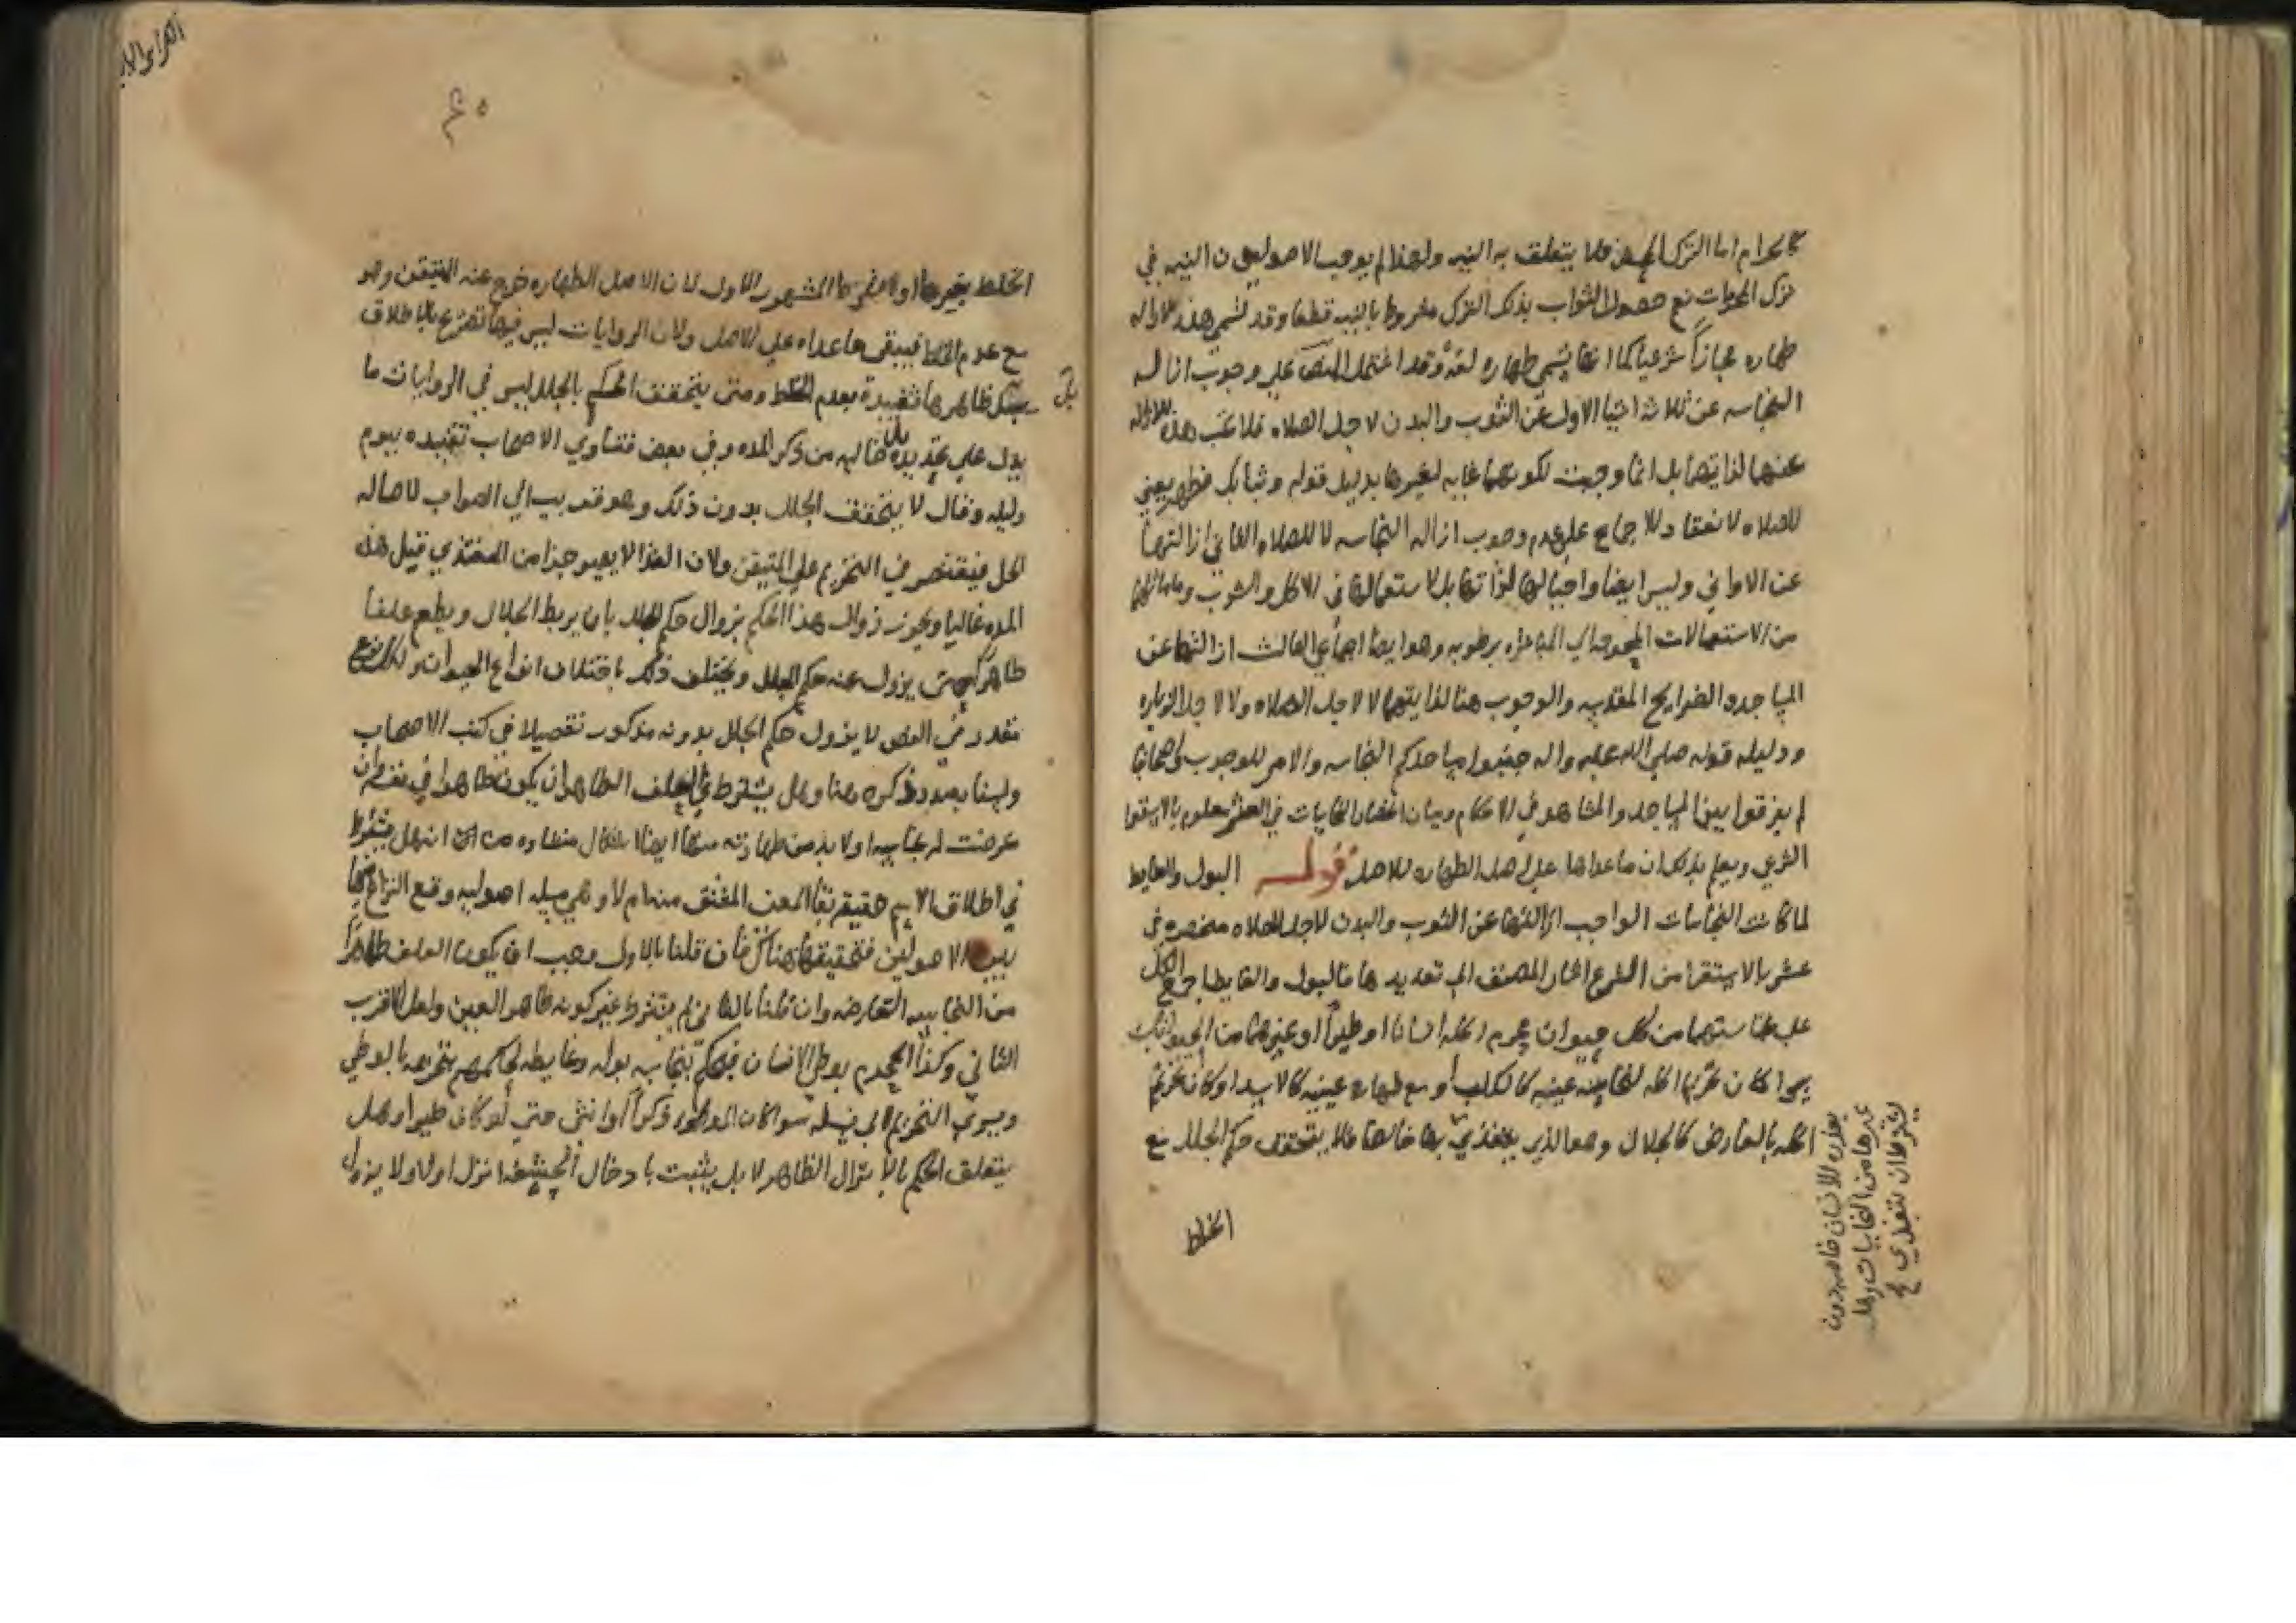 كالحرام اما الترك المحض فلا يتعلق به النيه ولهذا لم يوجب الاصوليون النيه في
ترك المحرمات نعم حصول الثواب بذلك الترك مشروط بالنيه قطعا وقد تسمى هذه الازاله
طهاره مجازاً شرعيا كما انها تسمى طهاره لغة وقد اشتمل النص على وجوب ازاله
النجاسه عن ثلاثه اشيا الاول عن الثوب والبدن لاجل الصلاه فلا تجب هذه الازاله
عنهما لذاتهما بل انما وجبت لكونهما غايه لغيرها بدليل قوله وثيابك فطهر يعني
للصلاه لانعقاد الاجماع على عدم وجوب ازاله النجاسه لا للصلاه الثاني ازالتها
عن الاواني وليس ايضا واجبا لها لذاتها بل لاستعمالها في الاكل والشرب وما ماثلها
من الاستعمالات المحوجه الي المباشره برطوبه وهو ايضا اجماعي الثالث ازالتها عن
المساجد والضرايح المقدسه والوجوب هنا لذاتهما لا لاجل الصلاه ولا لاجل الزياره
ودليله قوله صلى الله عليه واله جنبوا مساجدكم النجاسه والامر للوجوب
لم يفرقوا بين المساجد والمشاهد في الاحكام وبيان انحصار النجاسات في العشر معلوم بالاستقرا
الشرعي ويعلم بذلك ان ماعداها على اصل الطهاره للاصل قوله البول والغايط
لما كانت النجاسات الواجب ازالتها عن الثوب والبدن لاجل الصلاه منحصره في
عشر بالاستقرا من الشرع اشار المصنف الى تعديدها فالبول والغايط اجمع الكل
على نجاستهما من كل حيوان محرم اكله انسانا او طيراً او غيرهما من الحيوانات
سوا كان تحريم اكله لنجاسه عينه كالكلب او مع طهاره عينه كالاسد او كان تحريم
اكله بالعارض كالجلال وهو الذي يغتذي بها خالصا فلا يتحقق حكم الجلل مع
بعذره الانسان خاصه دون
غيرها من النجاسات وهل
يشترط ان يغتذي
الخلط
٤٥
الخلط بغيرها اولا المشهور الاول لان الاصل الطهاره خرج عنه المتيقن وهو
مع عدم الخلط فيبقى ماعداه على الاصل ولان الروايات ليس فيها تصريح بالاطلاق
بل
ظاهرها مقيدة بعدم الخلط ومتى يتحقق الحكم بالجلل ليس في الروايات ما
يدل على تحديده بل خاليه من ذكر المده وفي بعض فتاوي الاصحاب تقييده بيوم
وليله وقال لا يتحقق الجلل بدون ذلك وهو قريب الى الصواب لاصاله
الحل فيقتصر في التحريم على المتيقن ولان الغذا لا يصير جزا من المغتذي قبل هذه
المده غالبا ويجوز زوال هذا الحكم بزوال حكم الجلل بان يربط الجلال ويطعم علفا
طاهراً حتى يزول عنه حكم الجلل ويختلف ذلك باختلاف انواع الحيوان ولكل نوع
مقدر في النص لا يزول حكم الجلل بدونه مذكور تفصيلا في كتب الاصحاب
ولسنا بصدد ذكره هنا وهل يشترط في العلف الطاهر ان يكون طاهرا في نفسه وان
عرضت له نجاسه اولا بد من طهارته منها ايضا اشكال منشاوه من انه هل يشترط
في اطلاق الاسم حقيقة بقا المعنى المشتق منه ام لا وهي مسئله اصوليه وقع النزاع فيها
بين الاصوليين فتحقيقها هناك فان قلنا بالاول وجب ان يكون العلف طاهراً
من النجاسه العارضه وان قلنا بالثاني لم يشترط غير كونه طاهر العين ولعل الاقرب
الثاني وكذا المحرم بوطي الانسان فيحكم بنجاسه بوله وغايطه لحكمهم بتحريمه بالوطي
ويسري التحريم الى نسله سوا كان الموطوء ذكراً او انثى حتى لو كان طيرا وهل
يتعلق الحكم بالانزال الظاهر لا بل يثبت بادخال الحشفه انزل اولا ولا يزول